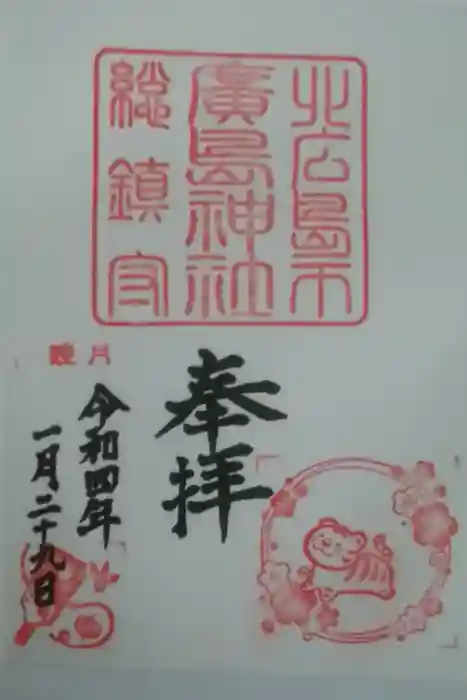 北広島市
廣島神社
総鎮守
奉拝
睦月
令和四年
一月二十九日